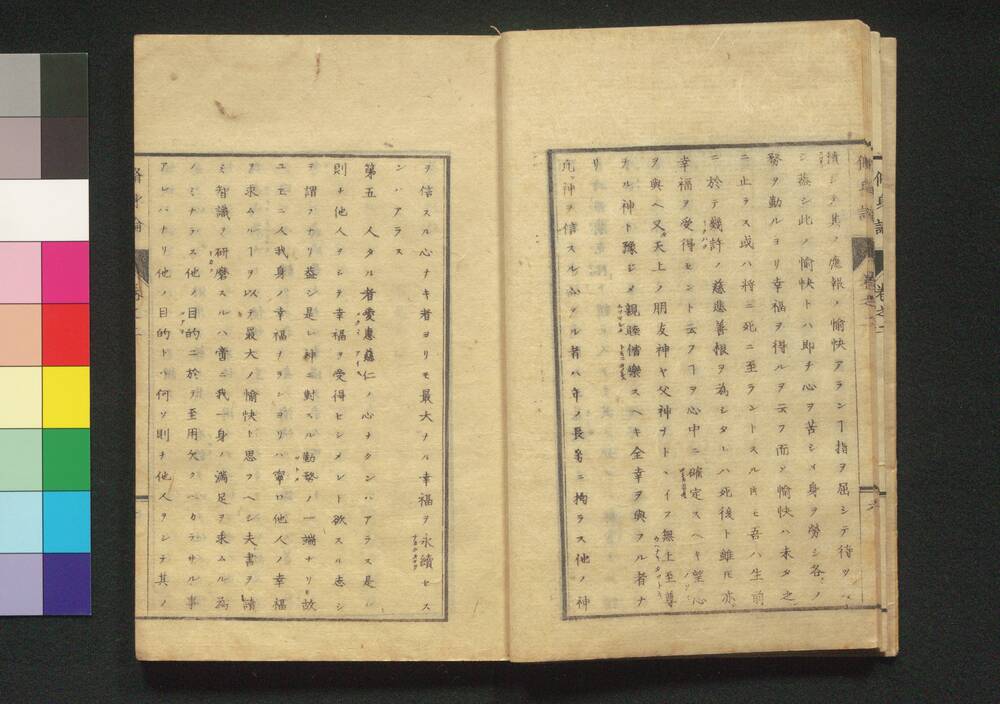 積シテ其ノ應報ノ愉快アランヿ指ヲ屈シテ待ツベ
シ蓋シ此ノ愉快トハ即チ心ヲ苦シメ身ヲ勞シ各ノ
務ヲ勤ルヨリ幸福ヲ得ルヲ云フ而シ愉快ハ未タ之
ニ止ラス或ハ將ニ死ニ至ラントスル時モ吾ハ生前
ニ於テ幾許ノ慈悲善根ヲ為シタレハ死後ト雖𪜈亦
幸福ヲ受得セント云フヿヲ心中ニ確定スヘキ望心
ヲ與ヘ又天上ノ朋友神ヤ父神ヲトイフ無上至尊
ナル神ト豫シメ親睦偕樂スヘキ全幸ヲ與フル者ナ
リ
凡ソ神ヲ信スル心アル者ハ年ノ長
ニ拘ラス他ノ神
ヲ信スル心ナキ者ヨリモ最大ナル幸福ヲ永續セス
ンハアラス
第五 人タル者愛惠慈仁ノ心ナクンハアラス是レ
則チ他人ヲシテ幸福ヲ受得セシメント欲スル志シ
ヲ謂フナリ蓋シ是レ神ニ對スル勤務ノ一端ナリ故
ユエニ人我身ノ幸福ナランヨリハ寧ロ他人ノ幸福
ヲ求ムルヿヲ以テ最大ノ愉快ト思フヘシ夫書ヲ讀
ミ智識ヲ研磨スルハ啻ニ我一身ノ滿足ヲ求ムル為
ノミナラス他ノ目的ニ於テ至用欠クヘカラサル事
アレハナリ他ノ目的トハ何ソ則チ他人ヲシテ其ノ
脩身論 卷之二
六